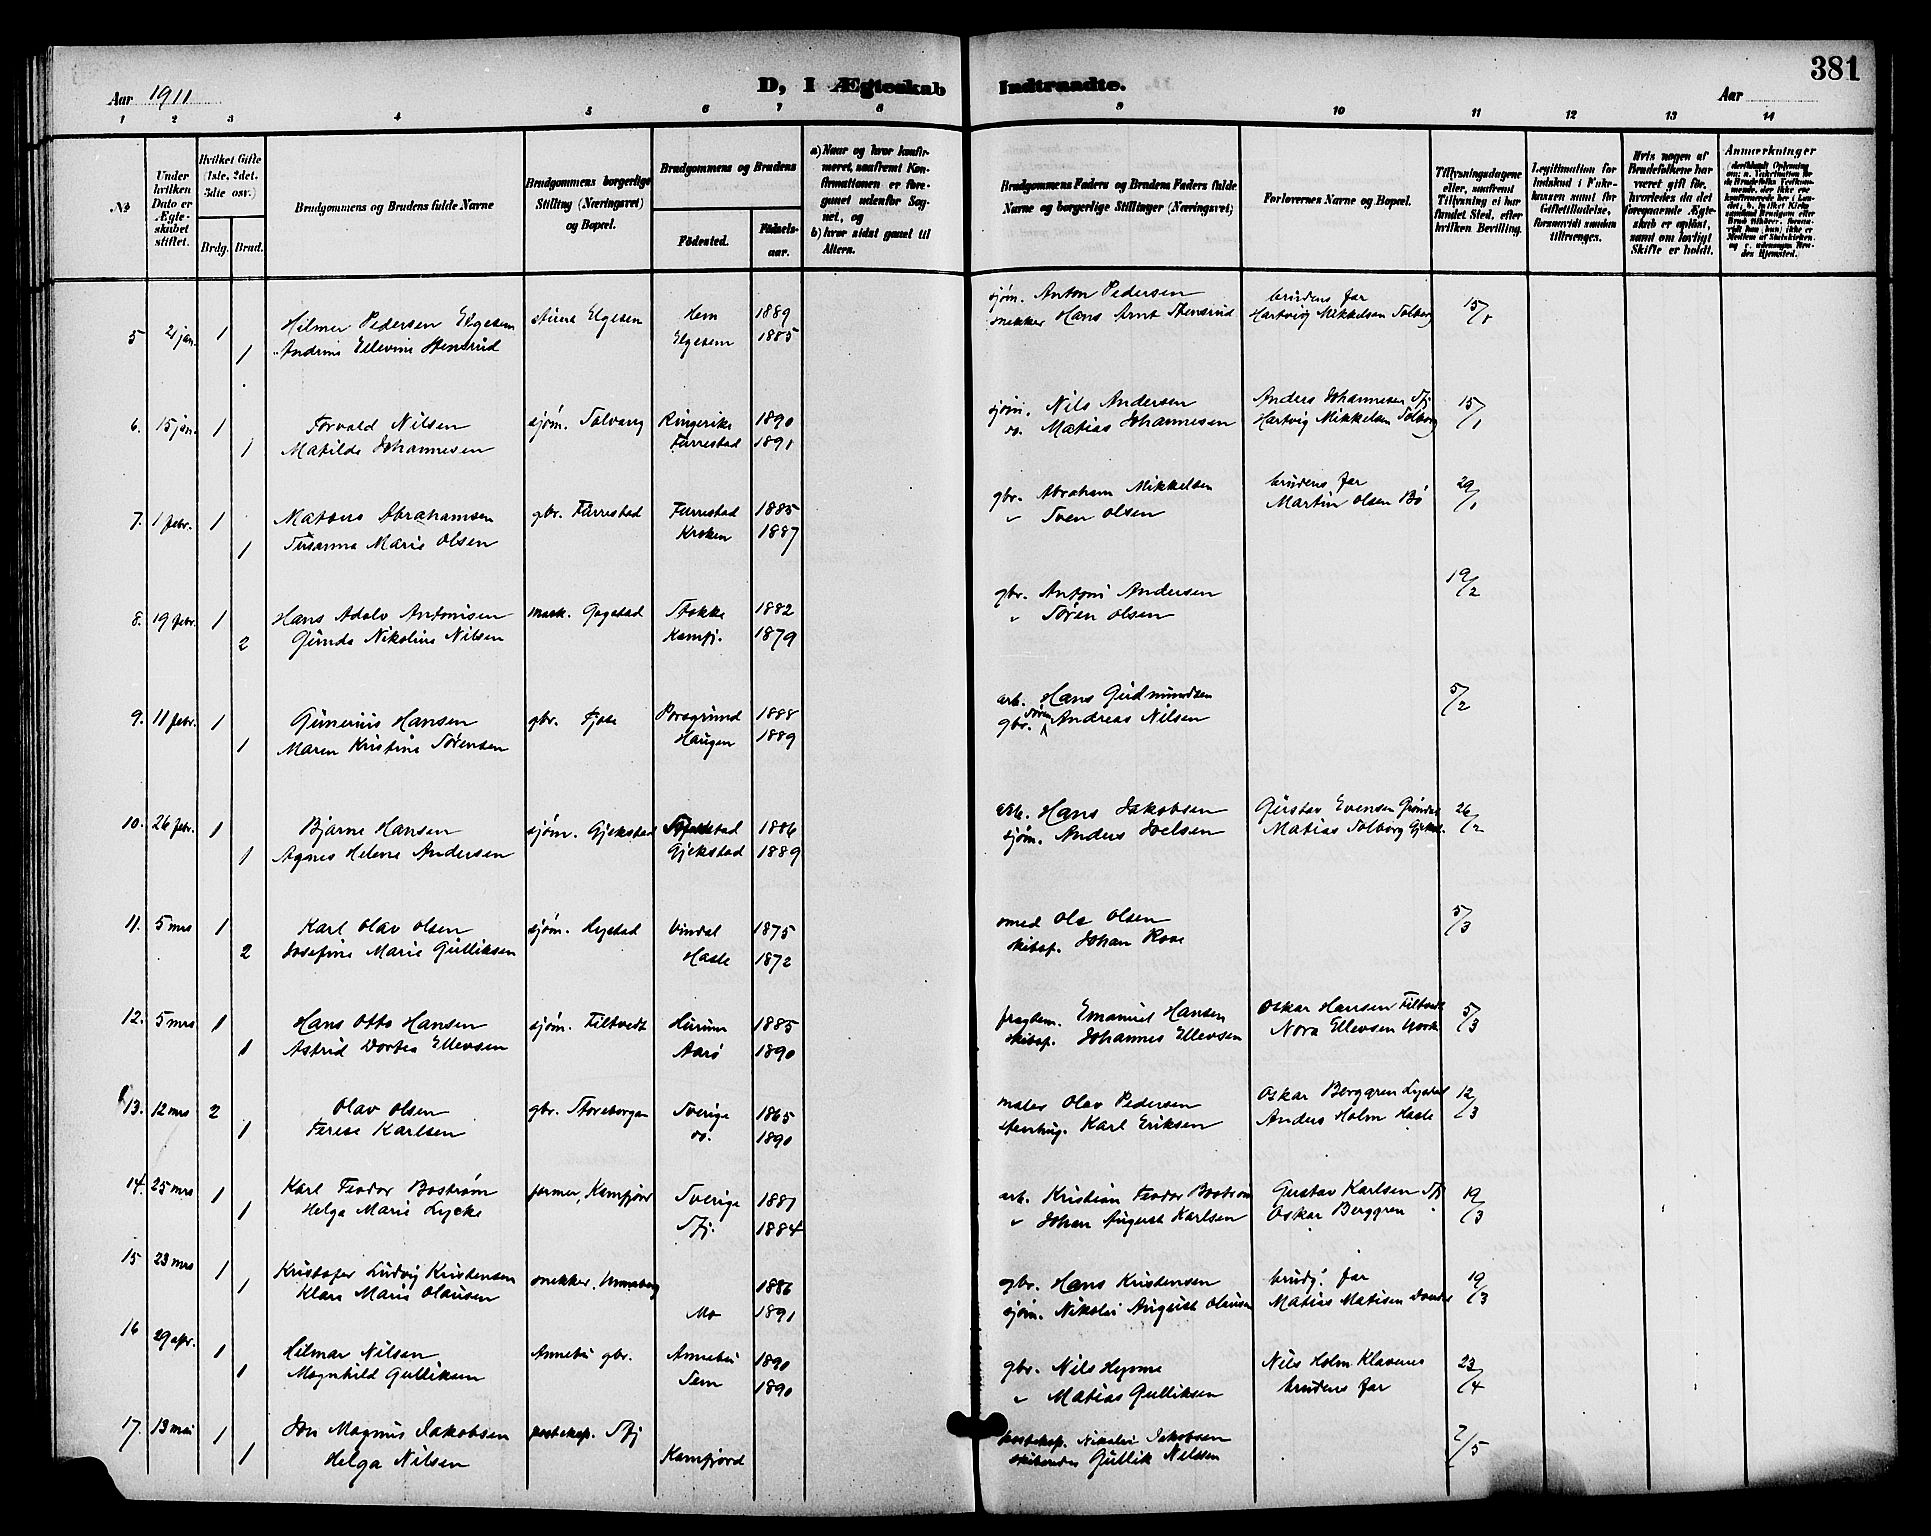 381
Aar 1911
D, I Ægteskab Indtraadte.
Aar
1 2 3 4 5 6 7 8 9 10 11 12 13 14
No
Under hvilken Dato er Ægteskabet stiftet.
Hvilket Gifte (1ste, 2det, 3die osv.)
Brdg. Brud.
Brudgommens og Brudens fulde Navne
Brudgommens borgerlige Stilling (Næringsvei) og Bopæl.
Brudgommens og Brudens
Födested. Födselsaar.
a) Naar og hvor konfirmeret, saafremt Konfirmationen er foregaaet udenfor Sognet, og
b) hvor sidst gaaet til Altern.
Brudgommens Faders og Brudens Faders fulde Navne og borgerlige Stillinger (Næringsvei)
Forlovernes Navne og Bopæl.
Tillysningsdagene eller, saafremt Tillysning ei har fundet Sted, efter hvilken Bevilling.
Legitimation for Indskud i Enkekassen samt for Giftetilladelse, forsaavidt saadan tiltrænges.
Hvis nogen af Brudefolkene har været gift för, hvorledes da det foregaaende Ægteskab er oplöst, samt om lovligt Skifte er holdt.
Anmærkninger
5 2 jan. 1 Hilmer Pedersen Elgesem Elgesem Hem 1889 sjøm. Anton Pedersen brudens far 15/1
1 Andrine Ellevine Stensrud Elgesem 1885 snekker Hans Arnt Stensrud Hartvig Mikkelsen Solberg
6. 15 jan. 1 Torvald Nilsen sjøm. Solvang Ringerike 1890 sjøm. Nils Andersen Anders Johannesen Sfj 15/1
1 Matilde Johannesen Furrestad 1891 do. Matias Johannesen Hartvig Mikkelsen Solberg
7. 1 febr. 1 Mathæus Abrahamsen gbr. Furrestad Furrestad 1885 gbr. Abraham Mikkelsen brudens far 29/1
1 Susanna Marie Olsen Kroken 1887 " Sven Olsen Martin Olsen Bø
8. 19 febr. 1 Hans Adolv Antonisen mask. Gogstad Stokke 1882 gbr. Antoni Andersen 19/2
2 Gunda Nikoline Nilsen Kamfj. 1879 " Søren Olsen
9. 11 febr. 1 Gunerius Hansen gbr. Porsgrund 1888 arb. Hans Gudmundsen 5/2
1 Maren Kristine Sørensen Haugen 1889 gbr. Søren Andreas Nilsen
10. 26 febr. 1 Bjarne Hansen sjøm. Gjekstad 1886 arb. Hans Jakobsen Gustav Evensen 26/2
1 Agnes Helene Andersen Gjekstad 1889 sjøm. Anders Joelsen Matias Solberg Gjekst.
11. 5 mrs 1 Karl Olav Olsen sjøm. Lystad Vindal 1875 smed Ole Olsen 5/3
2 Josefine Marie Gulliksen Hasle 1872 skibsf. Johan Roae
12. 5 mrs 1 Hans Otto Hansen sjøm. Filtvedt Hurum 1885 Emanuel Hansen Oskar Hansen Filtvedt 5/3
1 Astrid Dortea Ellevsen Aarø 1890 skibsf. Johannes Ellevsen Nora Ellevsen
13. 12 mrs 2 Olav Olsen gbr. Storeborgen Sverige 1865 maler Olav Pedersen Oskar Berggren Lystad 12/3
1 Terese Karlsen do. 1890 stenhug. Karl Eriksen Anders Holm Hasle
14. 25 mrs 1 Karl Teodor Boström former, Kamfjord Sverige 1881 arb. Kristian Teodor Boström Gustav Karlsen Sfj 19/3
1 Helga Marie Lycke Sfj. 1884 " Johan August Karlsen Oskar Berggren "
15 23 mrs 1 Kristofer Ludvig Kristensen snekker, Unneberg 1886 gbr. Hans Kristensen brudg. far 19/3
1 Klara Marie Olausen Mo 1891 sjøm. Nikolai August Olausen Matias Matisen
16 29 apr. 1 Hilmar Nilsen Annebu gbr. Annebu 1890 gbr. Nils Nils Holm Klavenes 23/4
1 Magnhild Gulliksen Sem 1890 " Matias Gulliksen brudens far
17. 13 mai 1 Jon Magnus Jakobsen posteksp. Sfj posteksp. Nikolai Jakobsen 7/5
1 Helga Nilsen Kamfjord Gullik Nilsen